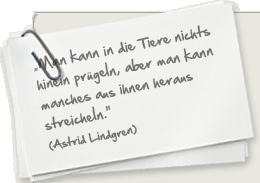 „Man kann in die Tiere nichts
hinein prügeln, aber man kann
manches aus ihnen heraus
streicheln."
(Astrid Lindgren)